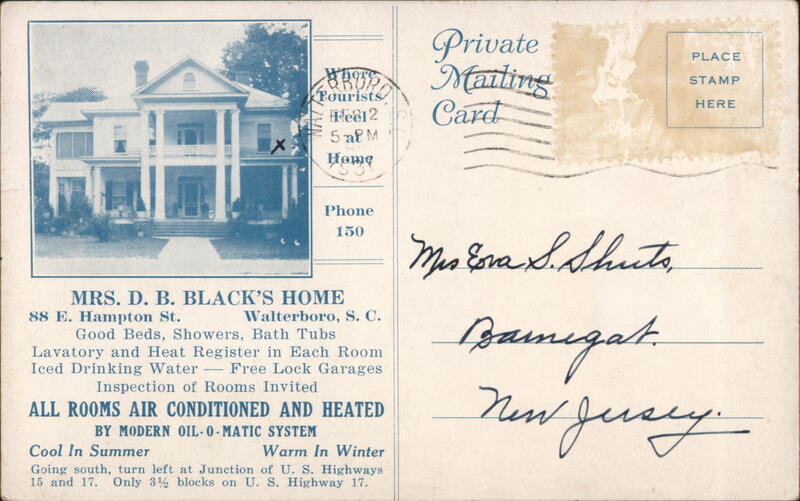 Where
Tourists
Feel
at
Home
Phone
150
MRS. D. B. BLACK'S HOME
88 E. Hampton St. Walterboro, S. C.
Good Beds, Showers, Bath Tubs
Lavatory and Heat Register in Each Room
Iced Drinking Water — Free Lock Garages
Inspection of Rooms Invited
ALL ROOMS AIR CONDITIONED AND HEATED
BY MODERN OIL-O-MATIC SYSTEM
Cool In Summer Warm In Winter
Going south, turn left at Junction of U. S. Highways
15 and 17. Only 3½ blocks on U. S. Highway 17.
WALTERBORO, S.C.
FEB 2
5-PM
Private
Mailing
Card
PLACE
STAMP
HERE
Mrs S. Shuts,
Barnegat.
New Jersey.